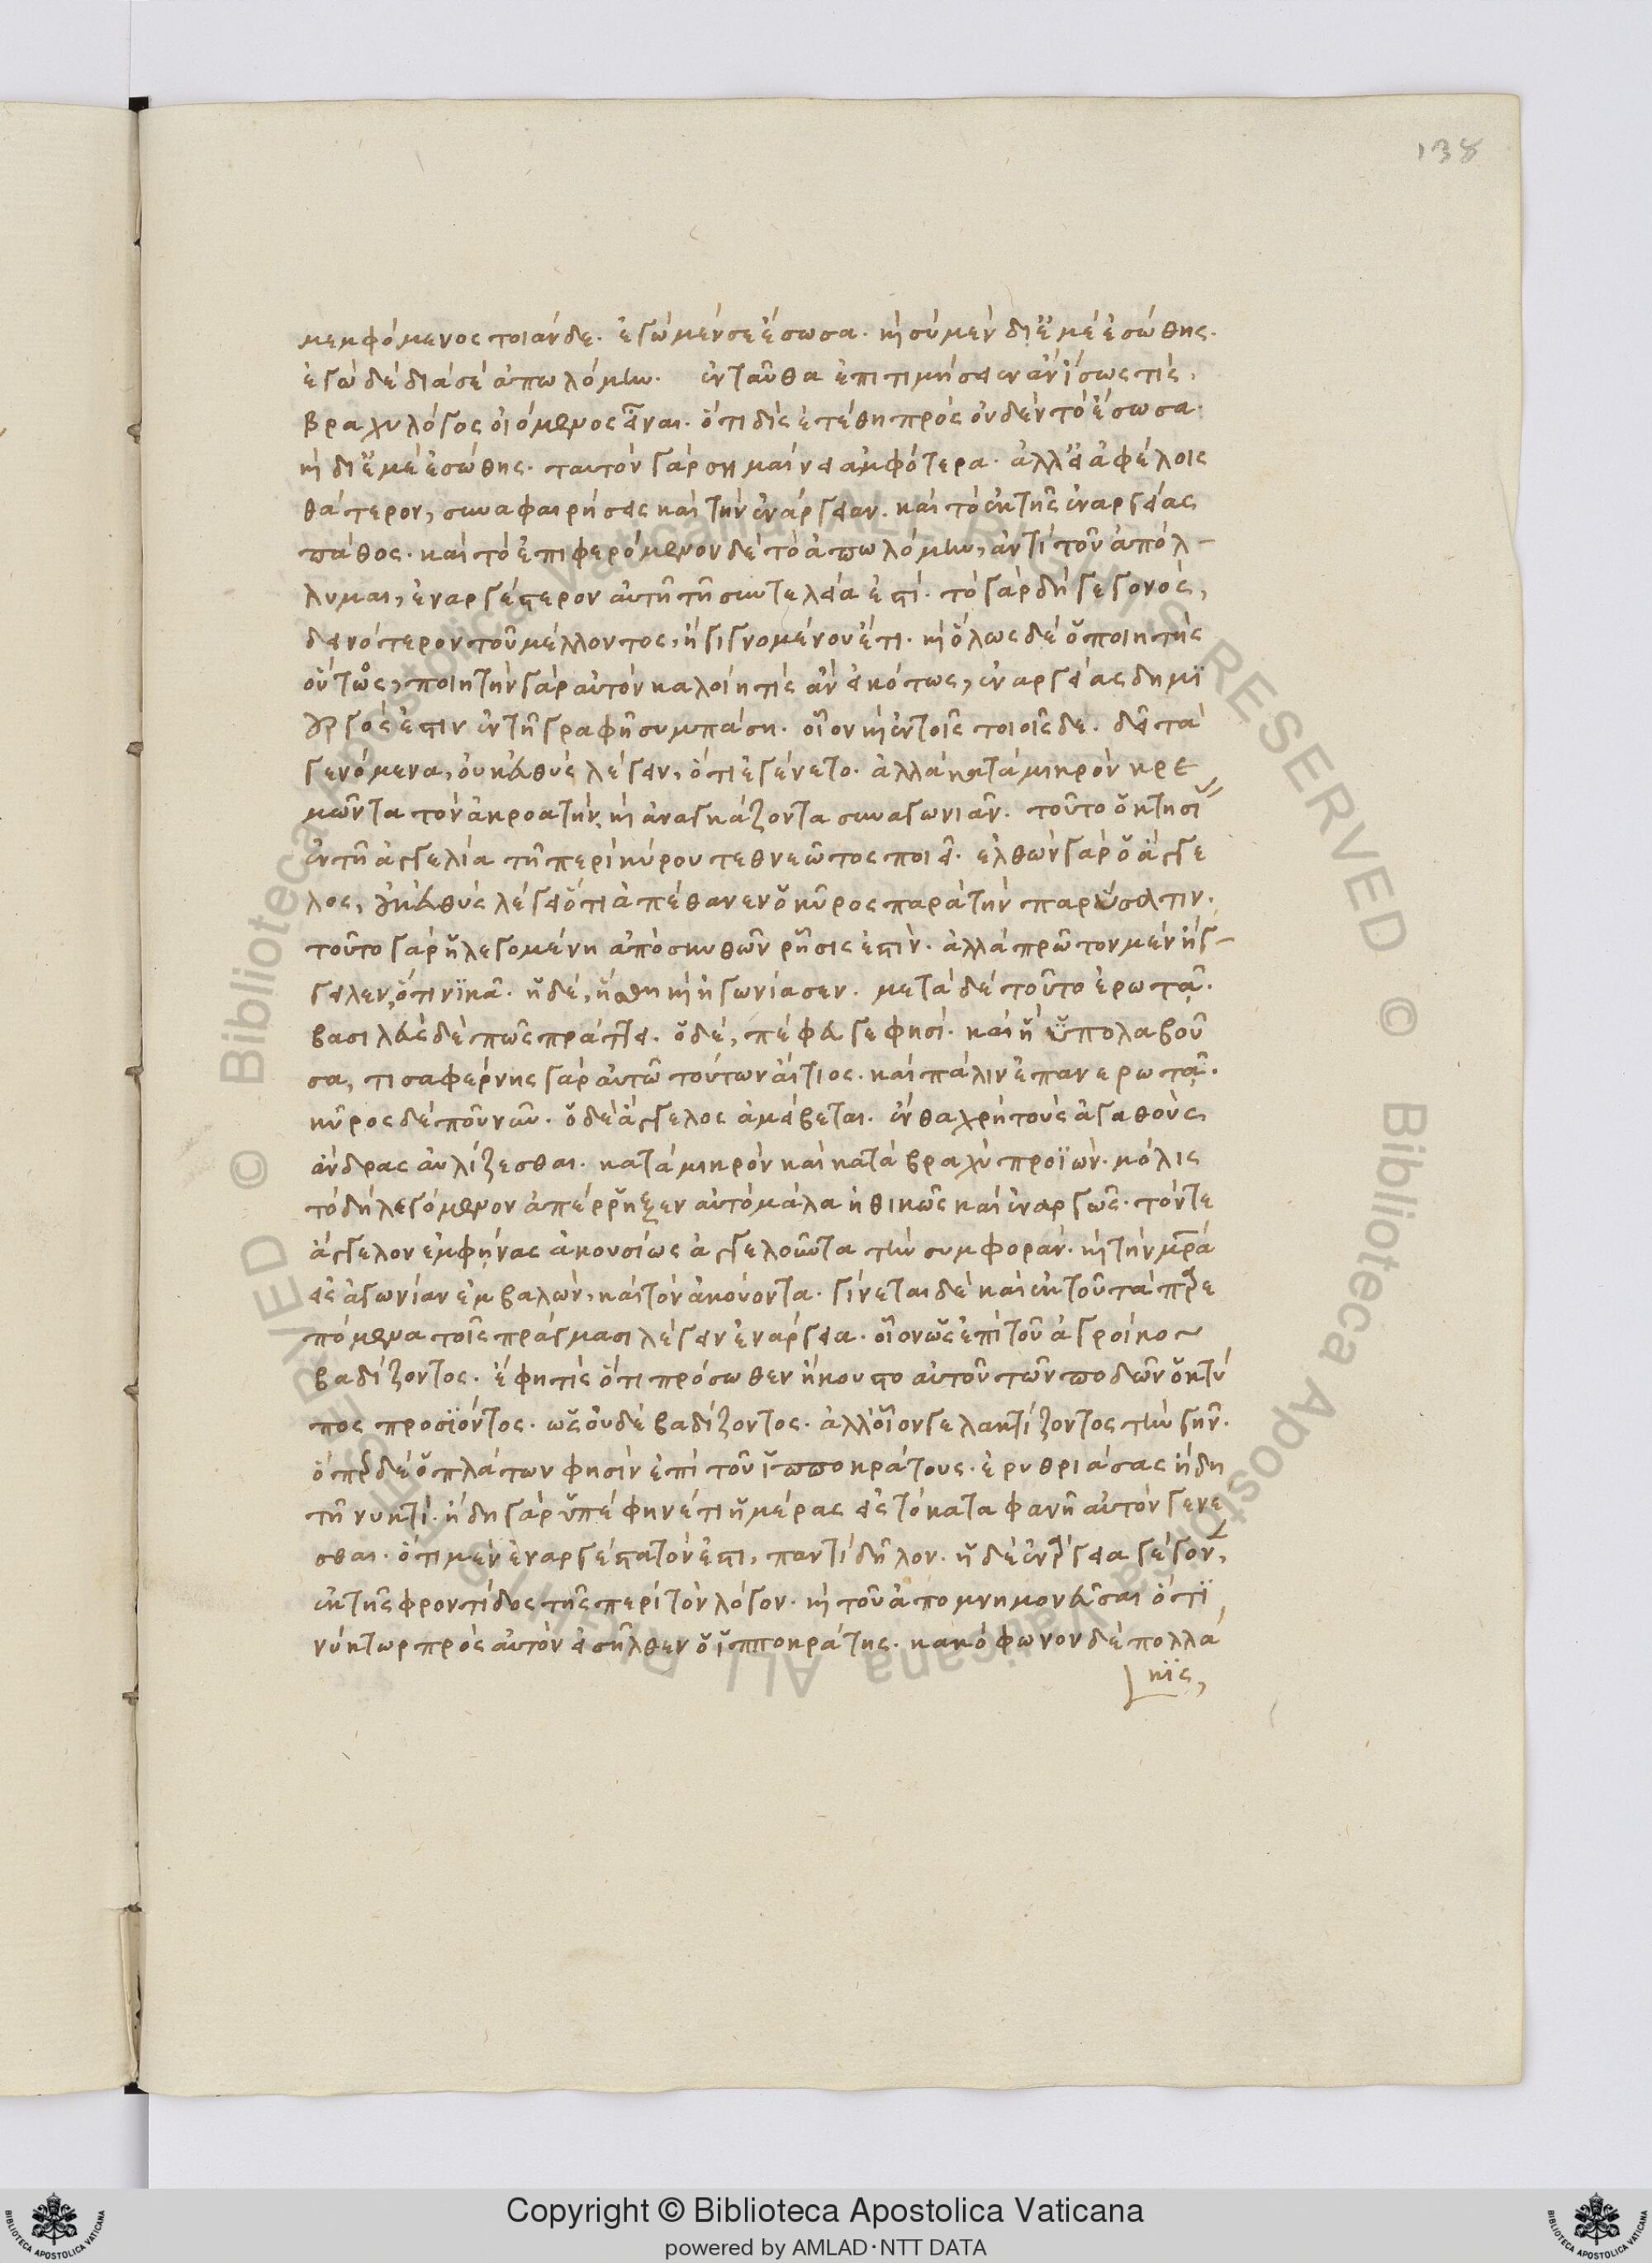 138
μεμφόμενος τοιάνδε. ἐγὼ μὲν σὲ ἔσωσα. καὶ σὺ μὲν δι' ἐμὲ ἐσώθης.
ἐγὼ δὲ διὰ σὲ ἀπωλόμην. ἐνταῦθα ἐπιτιμήσειεν ἂν ἴσως τὶς,
βραχυλόγος οἰόμενος εἶναι. ὅτι δὶς ἐτέθη πρὸς οὐδὲν τὸ ἔσωσα.
καὶ δι' ἐμὲ ἐσώθης. ταυτὸν γὰρ σημαίνει ἀμφότερα. ἀλλ' εἰ ἀφέλοις
θάτερον, συναφαιρήσεις καὶ τὴν ἐνάργειαν. καὶ τὸ ἐκ τῆς ἐναργείας
πάθος. καὶ τὸ ἐπιφερόμενον δὲ τὸ ἀπωλόμην, ἀντὶ τοῦ ἀπόλ-
λυμαι, ἐναργέστερον αὐτῇ τῇ συντελεία ἐστί. τὸ γὰρ δὴ γεγονὸς,
δεινότερον τοῦ μέλλοντος, ἢ γιγνομένου ἔτι. καὶ ὅλως δὲ ὁ ποιητὴς
οὗτος, ποιητὴν γὰρ αὐτὸν καλοίη τὶς ἂν εἰκότως, ἐναργείας δημϊ
ουργός ἐστιν ἐν τῇ γραφῇ συμπάση. οἷον καὶ ἐν τοῖς τοιοῖσδε. δεῖ τὰ
γενόμενα, οὐκ εὐθὺς λέγειν, ὅτι ἐγένετο. ἀλλὰ κατὰ μικρὸν κρε
μῶντα τὸν ἀκροατὴν, καὶ ἀναγκάζοντα συναγωνιᾶν. τοῦτο ὁ κτησί
ἐν τῇ ἀγγελία τῇ περὶ κύρου τεθνεῶτος ποιεῖ. ἐλθὼν γὰρ ὁ ἄγγε
λος, οὐκ εὐθὺς λέγει ὅτι ἀπέθανεν ὁ κῦρος παρὰ τὴν παρύσατιν.
τοῦτο γὰρ ἡ λεγομένη ἀπὸ σκυθῶν ῥῆσις ἐστίν. ἀλλὰ πρῶτον μὲν ἤγ-
γειλεν, ὅτι νϊκᾶ. ἡ δὲ, ἥσθη καὶ ἠγωνίασεν. μετὰ δὲ τοῦτο ἐρωτᾶ.
βασιλεὺς δὲ πῶς πράττει. ὁ δὲ, πέφευγέ φησί. καὶ ἡ ὑπολαβοῦ
σα, τισαφέρνης γὰρ αὐτῷ τούτων αἴτιος. καὶ πάλιν ἐπανερωτᾶ.
κῦρος δὲ ποῦ νῦν. ὁ δὲ ἄγγελος ἀμείβεται. ἔνθα χρὴ τοὺς ἀγαθοὺς,
ἄνδρας αὐλίζεσθαι. κατὰ μικρὸν καὶ κατὰ βραχὺ προϊὼν. μόλις
τὸ δὴ λεγόμενον ἀπέρρηξεν αὐτὸ μάλα ἠθικῶς καὶ ἐναργῶς. τόν τε
ἄγγελον ἐμφήνας ἀκουσίως ἀγγελοῦντα τὴν συμφοράν. καὶ τὴν μητέρα
εἰς ἀγωνίαν ἐμβαλὼν, καὶ τὸν ἀκούοντα. γίνεται δὲ καὶ ἐκ τοῦ τὰ παρε
πόμενα τοῖς πράγμασι λέγειν ἐνάργεια. οἷον ὡς ἐπὶ τοῦ ἀγροίκου
βαδίζοντος. ἔφη τὶς ὅτι πρόσωθεν ἤκουστο αὐτοῦ τῶν ποδῶν ὁ κτύ
πος προσϊόντος. ὡς οὐδὲ βαδίζοντος. ἀλλ' οἷόν γε λακτίζοντος τὴν γῆν.
ὅπερ δὲ ὁ πλάτων φησὶν ἐπὶ τοῦ ἱπποκράτους. ἐρυθριάσας ἤδη
τῇ νυκτί. ἤδη γὰρ ὑπέφηνέ τι ἡμέρας εἰς τὸ καταφανῆ αὐτὸν γενέ
σθαι. ὅτι μὲν ἐναργέστατόν ἐστι, παντὶ δῆλον. ἡ δὲ ἐνάργεια γέγονεν,
ἐκ τῆς φροντίδος τῆς περὶ τὸν λόγον. καὶ τοῦ ἀπομνημονεῦσαι ὅτϊ
νύκτωρ πρὸς αὐτὸν εἰσῆλθεν ὁ ἱπποκράτης. κακόφωνον δὲ πολλά
κϊς,
Copyright © Biblioteca Apostolica Vaticana
powered by AMLAD·NTT DATA